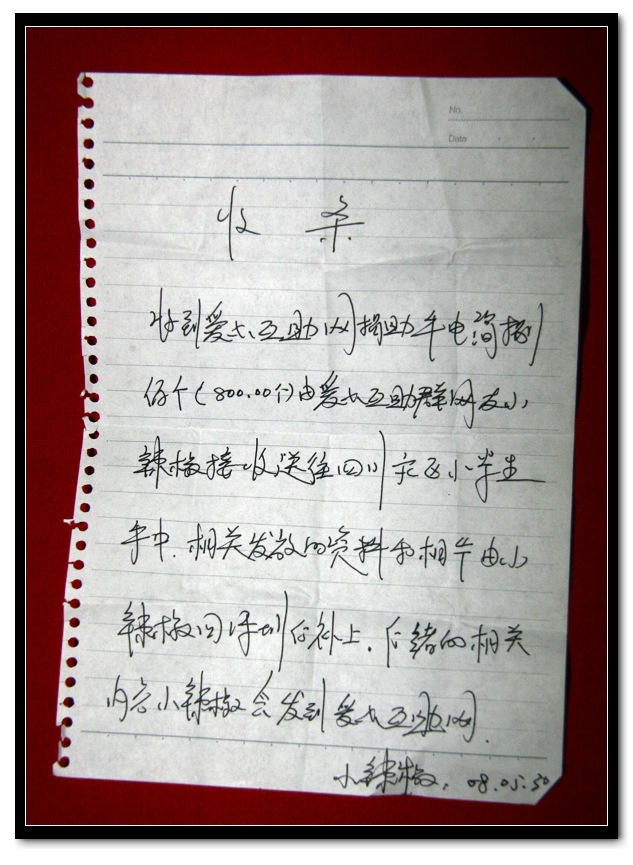 No.
Date
收 条
收到爱心互助网捐助手电筒捌
佰个（800.00个）由爱心互助群网友小
辣椒接收送往四川灾区小学生
手中.相关发放的资料和相片由小
辣椒回深圳后补上.后续的相关
内容小辣椒会发到爱心互助网.
小辣椒. 08.05.30